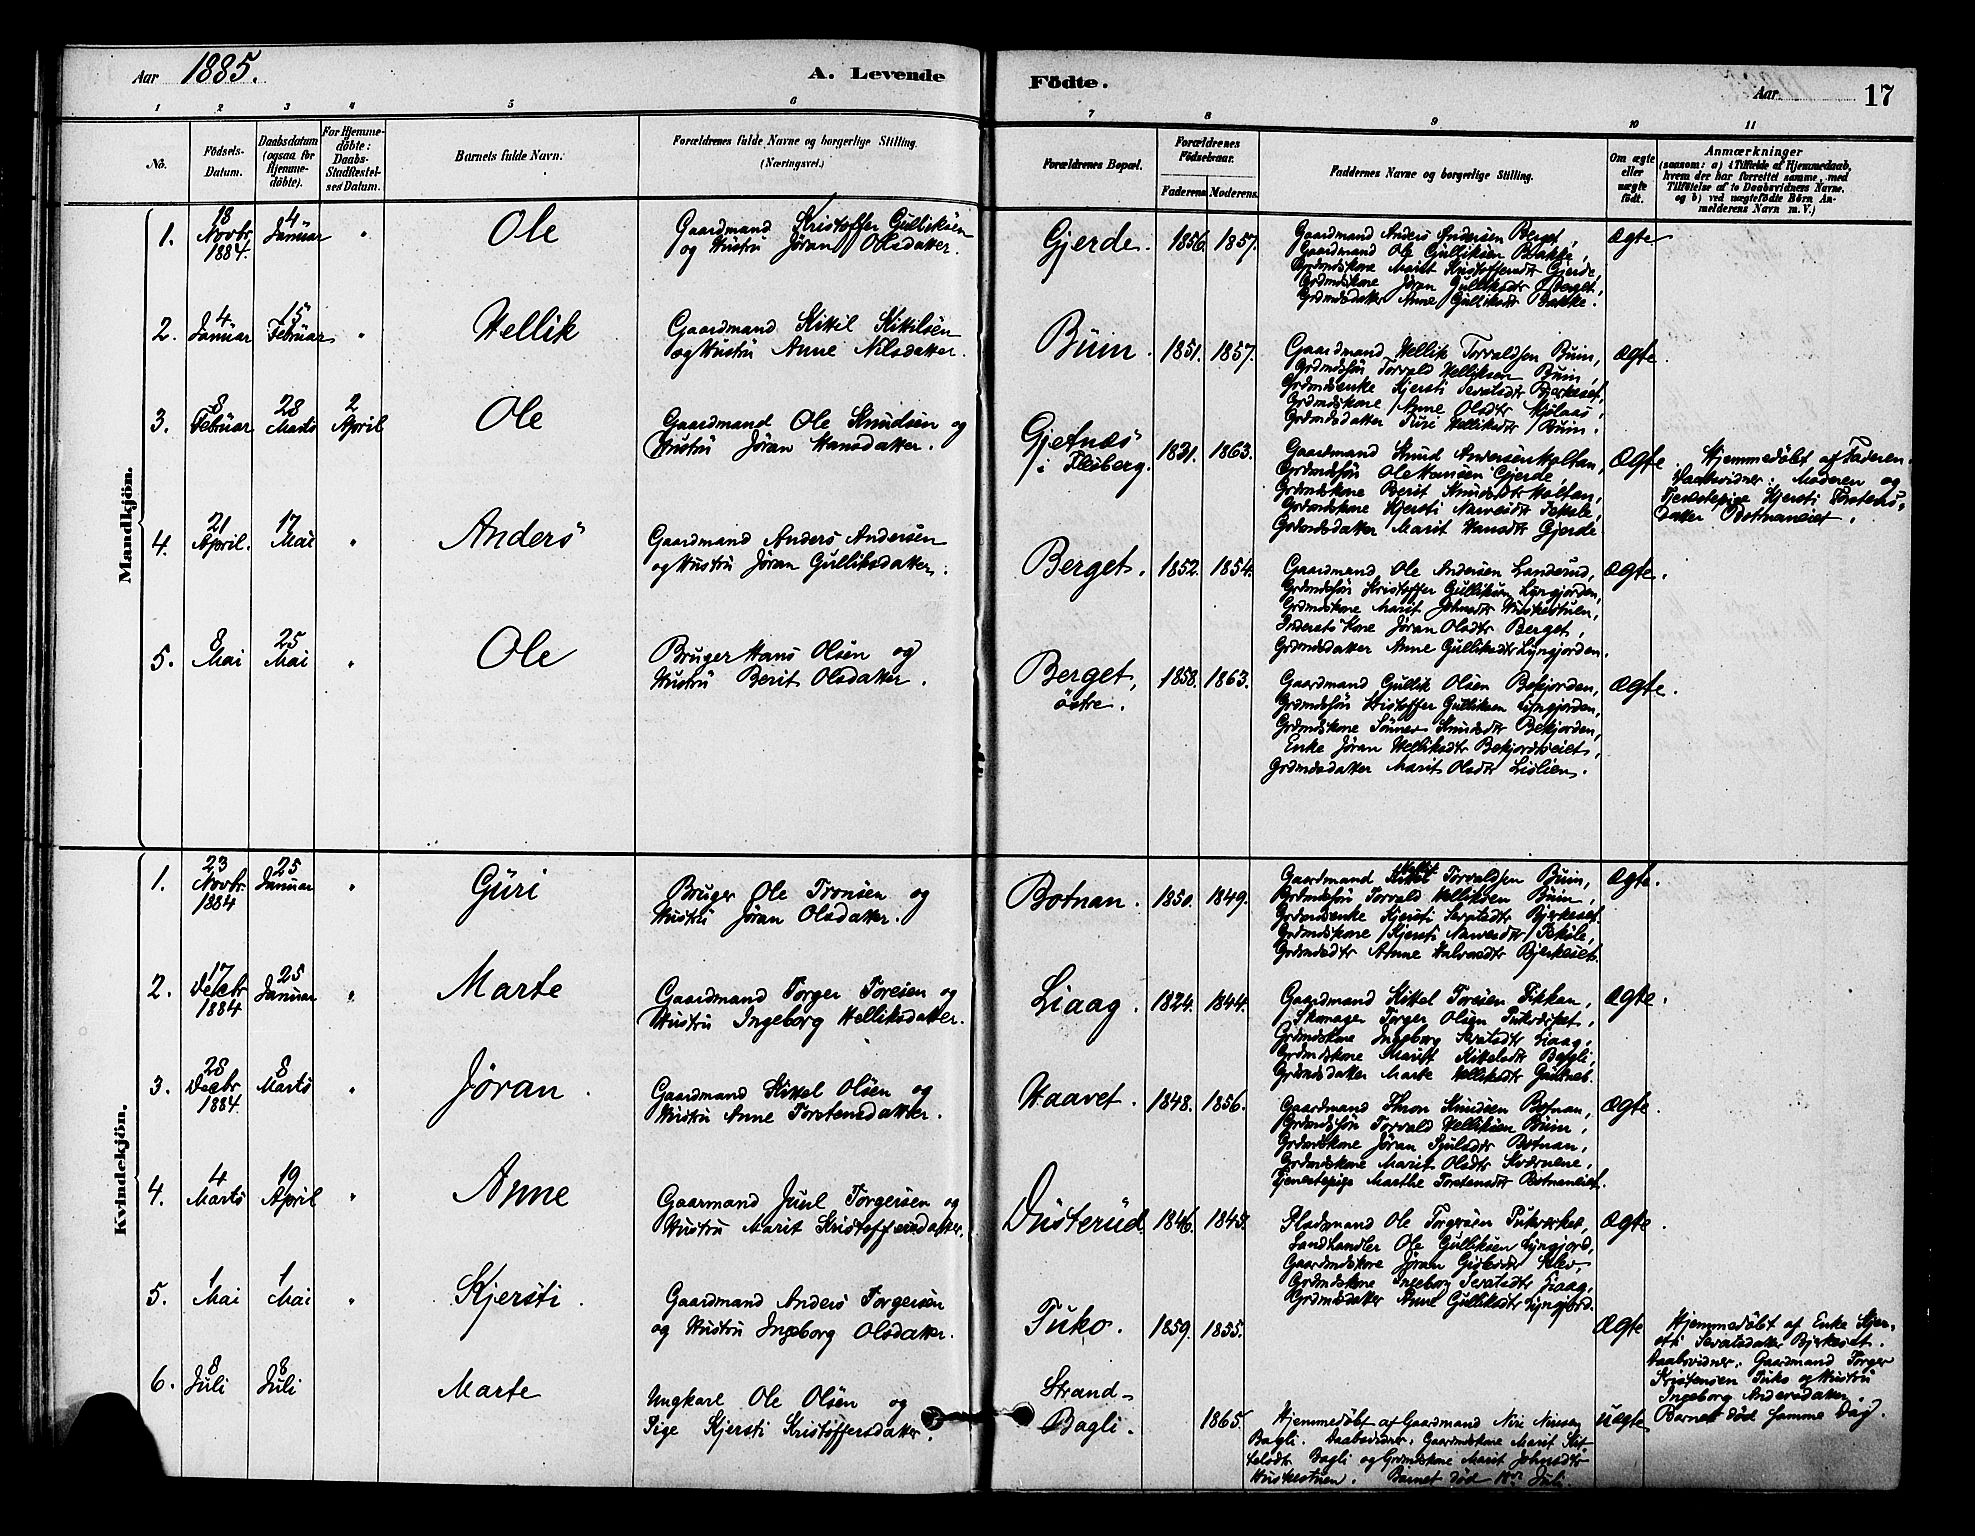 Aar 1885.
A. Levende Födte.
Aar 17
1 2 3 4 5 6 7 8 9 10 11
No.
Födsels-Datum.
Daabsdatum (ogsaa for Hjemmedöbte).
For Hjemmedöbte: Daabs-Stadfæstelses Datum.
Barnets fulde Navn.
Forældrenes fulde Navne og borgerlige Stilling.
(Næringsvei.)
Forældrenes Bopæl.
Forældrenes Födselsaar.
Faderens. Moderens.
Faddernes Navne og borgerlige Stilling.
Om ægte eller uægte födt.
Anmærkninger
(saasom: a) i Tilfælde af Hjemmedaab, hvem der har forrettet samme, med Tilföielse af to Daabsvidners Navne, og b) ved uægtefödte Börn Anmelderens Navn m. V.)
Mandkjön.
1. 18 Novbr. 1884. 4 Januar " Ole
Gaardmand Kristoffer Gulliksen
og Hustru Jøran Olsdatter.
Gjerde. 1856. 1857.
Gaardmand Anders Andersen Berget,
Gaardmand Ole Gulliksen Bakke,
Grdmdskone Marit Kristoffersdtr Gjerde,
Grdmdskone Jøran Gulliksdtr Berget,
Grdmdsdatter Anne Gulliksdt Bakke.
Ægte
2. 4 Januar 15 Februar " Hellik
Gaardmand Kittil Kittilsen
og Hustru Anne Nilsdatter.
Buin. 1851. 1857.
Gaardmand Hellik Torvaldsen Buin,
Grdmdssøn Torvald Helliksen Buin,
Grdmdsenke Kjersti Sevatsdtr Bjerkeset,
Grdmdskone Anne Olsdtr
Grdmdsdatter Turi Helliksdtr Buin.
Ægte.
3. 8 Februar 28 Marts 2 April Ole
Gaardmand Ole Knudsen og
Hustru Jøran Hansdatter.
Gjetnæs i Flesberg. 1831. 1863.
Gaardmand Knud Andersen Holtan,
Grdmdssøn Ole Hansen Gjerde,
Grdmdskone Berit Knudsdtr Holtan,
Grdmdskone Kjersti Narvesdtr
Grdmdsdatter Marit Hansdtr Gjerde
Ægte.
Hjemmedøbt af Faderen.
Daabsvidner: Moderen og
Tjenestepige Kjersti Torstens-
datter Botnaneiet.
4. 21 April. 17 Mai " Anders
Gaardmand Anders Andersen
og Hustru Jøran Gulliksdatter.
Berget. 1852. 1854.
Gaardmand Ole Andersen Landerud,
Grdmdssøn Kristoffer Gulliksen Lyngjorden,
Grdmdskone Marit Johnsdtr Huskestuen,
Inderst Kone Jøran Olsdtr Berget,
Grdmdsdatter Anne Gulliksdtr Lyngjorden.
Ægte.
5. 8 Mai 25 Mai " Ole
Bruger Hans Olsen og
Hustru Berit Olsdatter.
Berget, östre. 1858. 1863.
Gaardmand Gullik Olsen Bekjorden,
Grdmdssøn Kristoffer Gulliksen Lyngjorden,
Grdmdskone Sønnev Knudsdtr Bekjorden,
Enke Jøran Helliksdtr Bekjordseiet,
Grdmdsdatter Marit Olsdtr Lislien.
Ægte.
Kvindekjön.
1. 23 Novbr. 1884 25 Januar " Guri
Bruger Ole Tronsen og
Hustru Jøran Olsdatter.
Botnan. 1850. 1849.
Gaardmand Hellik Torvaldsen Buin,
Grdmdssøn Torvald Helliksen Buin,
Grdmdsenke Kjersti Sevatsdtr Bjerkeset.
Grdmdskone Kjersti Narvesdtr
Grdmdsdtr Anne Halvorsdtr Bjerkeset.
Ægte.
2. 17 Decbr 1884 25 Januar " Marte
Gaardmand Torger Toresen og
Hustru Ingeborg Helliksdatter.
Liaag. 1824. 1844.
Gaardmand Kittel Toresen
Torger Olsen
Grdmdskone Ingeborg Sevatsdtr Liaag,
Grdmdskone Marit Kittelsdtr Bagli,
Grdmdsdatter Marte Helliksdtr
Ægte.
3. 28 Decbr. 1884. 8 Marts " Jøran.
Gaardmand Kittel Olsen og
Hustru Anne Torstensdatter.
Haavet. 1848. 1856.
Gaardmand Thron Knudsen Botnan,
Grdmdssøn Torvald Helliksen Buin,
Grdmdskone Jøran Juulsdtr Botnan,
Grdmdskone Marit Olsdtr
Tjenestepige Marthe Torstensdtr Botnaneiet.
Ægte.
4. 4 Marts 19 April " Anne
Gaarmand Juul Torgersen og
Hustru Marit Kristoffersdatter.
Dusterud. 1846. 1845.
Pladsmand Ole Torgersen
Landhandler Ole Gulliksen Lyngjord,
Gaardmdskone Jøran Gislesdtr Klev,
Grdmdskone Ingeborg Sevatsdtr Liaag,
Grdmdsdatter Anne Gulliksdtr Lyngjord.
Ægte.
5. 1 Mai 1 Mai " Kjersti.
Gaardmand Anders Torgersen
og Hustru Ingeborg Olsdatter.
Tuko. 1859. 1855.
Ægte
Hjemmedøbt af Enke Kjer-
sti Sevatsdatter Bjerkeset.
Daabsvidner: Gaardmand Torger
Kristensen Tuko og Hustru
Ingeborg Andersdatter.
Barnet død samme Dag.
6. 8 Juli 8 Juli Marte
Ungkarl Ole Olsen og
Pige Kjersti Kristoffersdatter.
Strand-
Bagli. 1865.
Hjemmedøbt af Gaardmand
Bagli. Daabsvidner: Gaardmdskone Marit Kit-
telsdtr Bagli og Grdmdskone Marit Johnsdtr
Huskestuen. Barnet død Juli.
Uægte